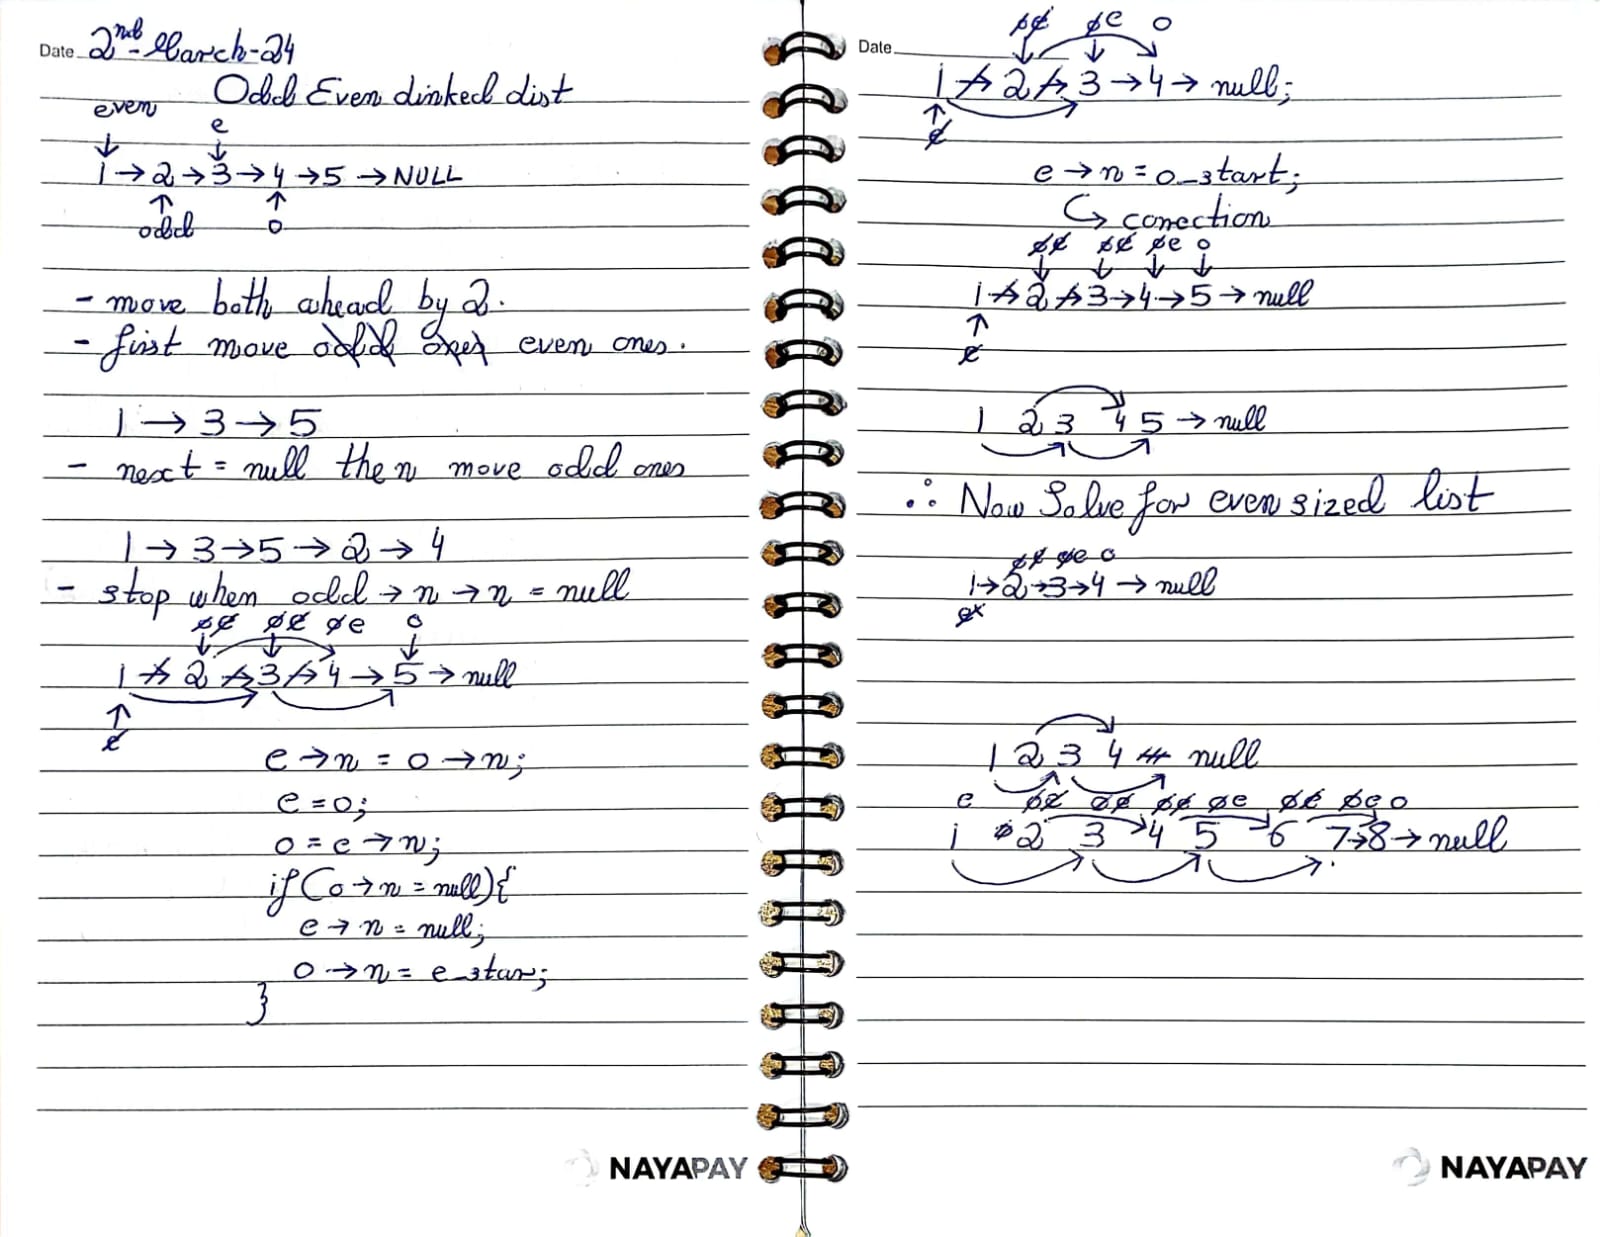 Date 2nd-March-24
Odd Even Linked List
even
e
1 → 2 → 3 → 4 → 5 → NULL
odd
o
- move both ahead by 2.
- first move odd ones even ones.
1 → 3 → 5
- next = null then move odd ones
1 → 3 → 5 → 2 → 4
- stop when odd → n → n = null
o e o e o e o
1 → 2 → 3 → 4 → 5 → null
e
e → n = o → n;
e = o;
o = e → n;
if (o → n = null) {
e → n = null;
o → n = e_star;
}
NAYAPAY
Date
o e o e o
1 → 2 → 3 → 4 → null;
e
e → n = o_start;
↳ correction
o e o e o e o
1 → 2 → 3 → 4 → 5 → null
e
1 2 3 4 5 → null
∴ Now Solve for even sized list
o e o e o
1 → 2 → 3 → 4 → null
e
1 2 3 4 null
e o e o e o e o e o e o e o
1 2 3 4 5 6 7 → 8 → null
NAYAPAY